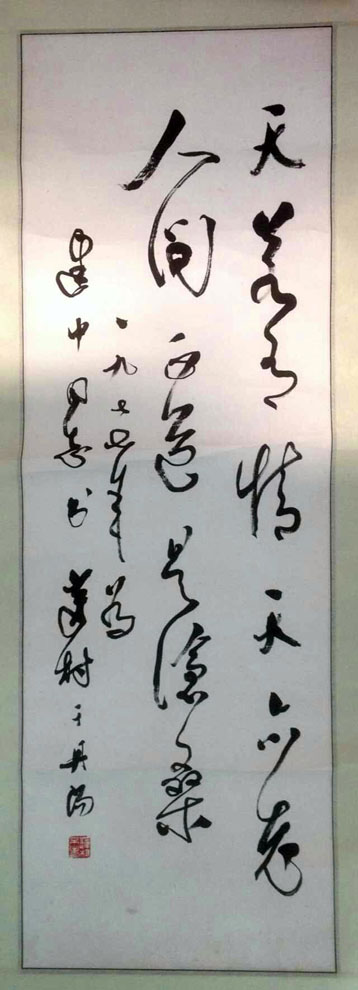 天若有情天亦老
人间正道是滄桑
一九七年为
建中同志书 村于